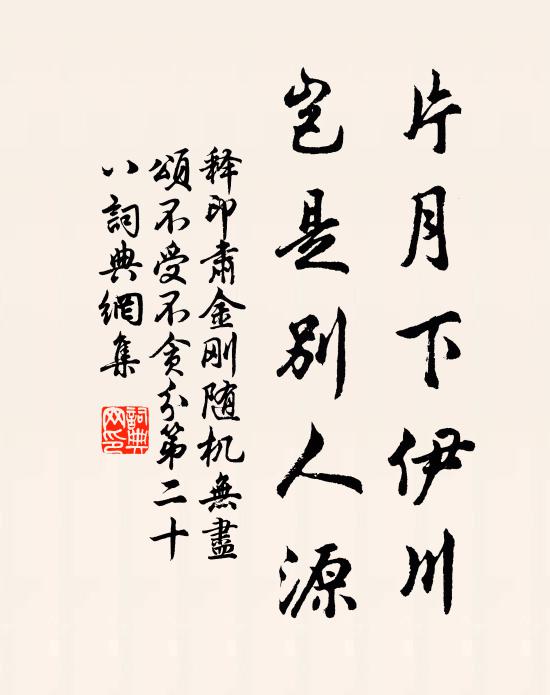 片月下伊川
岂是别人源
释印肃金刚随机無盡
頌不受不贪分第二十
八詞典網集
詞典网印